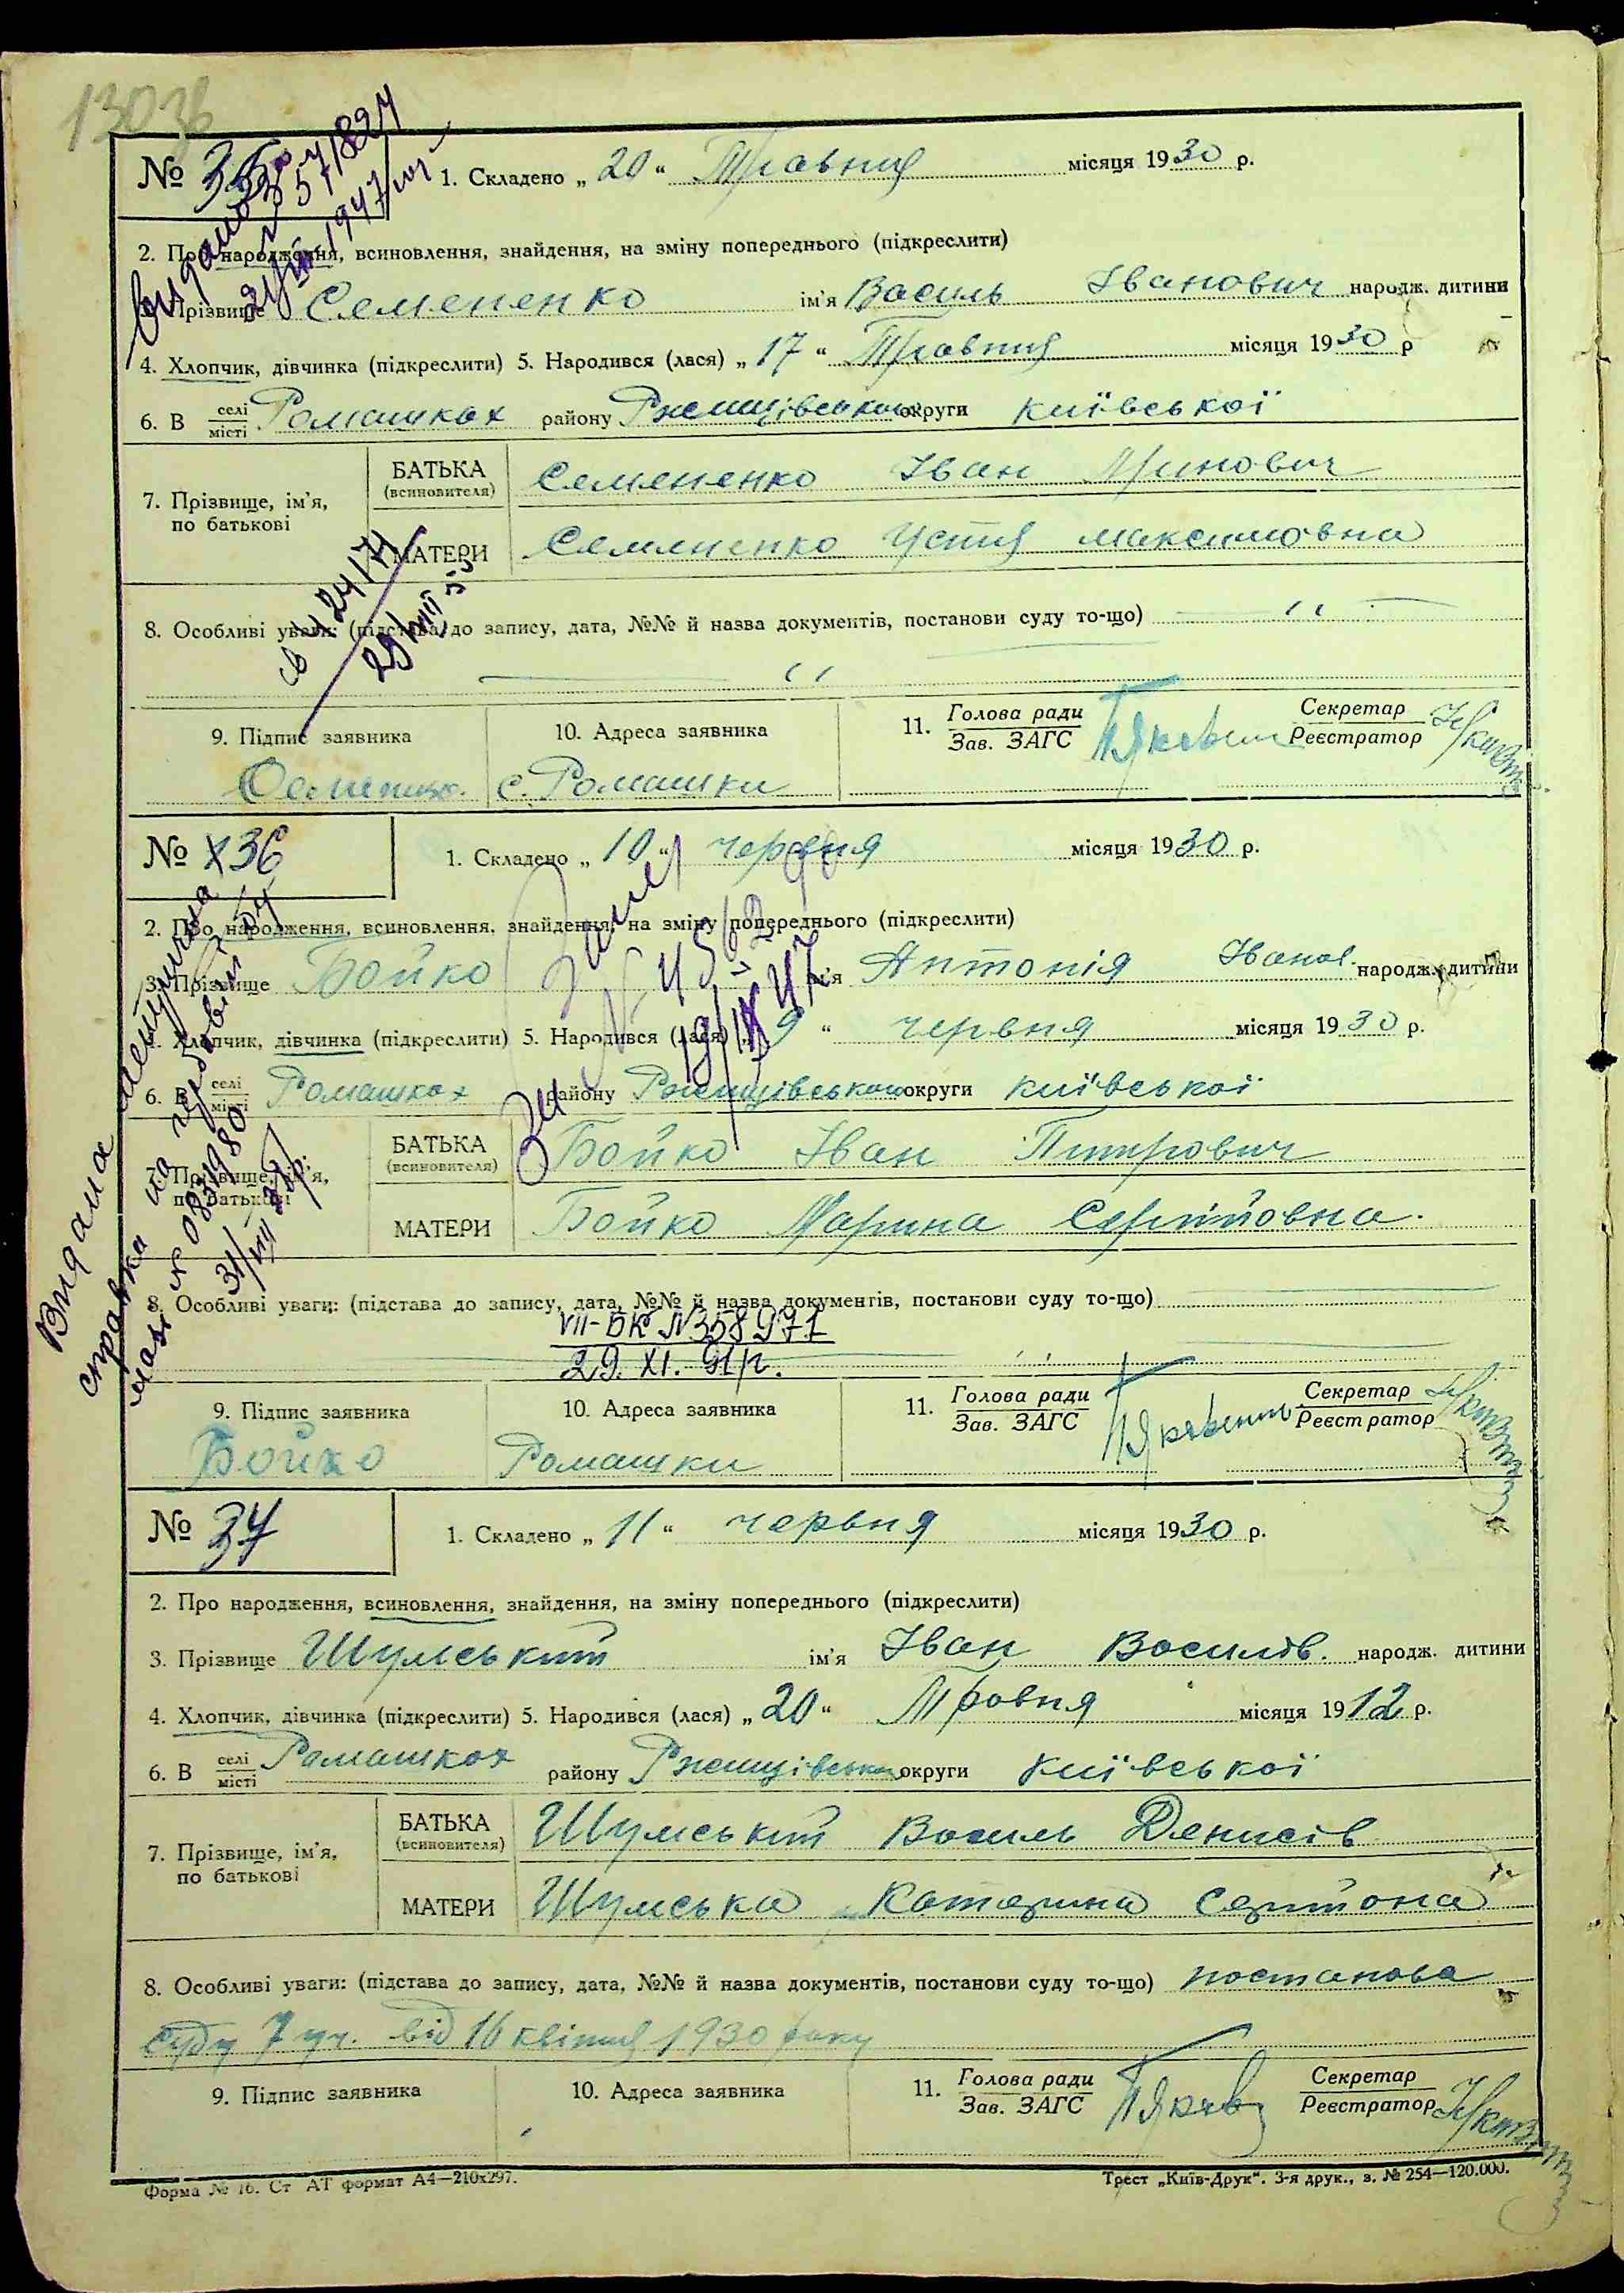 130зв
№ 35
1. Складено „ 20 “ Травня місяця 1930 р.
2. Про народження, всиновлення, знайдення, на зміну попереднього (підкреслити)
Прізвище Семененко ім'я Василь Іванович народж. дитини
4. Хлопчик, дівчинка (підкреслити) 5. Народився (лася) „ 17 “ Травня місяця 1930 р
6. В селі місті Ромашках району Ржищівського округи Київської
7. Прізвище, ім'я, по батькові
БАТЬКА (всиновителя) Семененко Іван Минович
МАТЕРИ Семененко Устя Максимовна
8. Особливі уваги: (підстава до запису, дата, №№ й назва документів, постанови суду то-що) — " —
— " —
9. Підпис заявника 10. Адреса заявника 11. Голова ради Зав. ЗАГС Секретар Реєстратор
с. Ромашки
№ х36
1. Складено „ 10 “ червня місяця 1930 р.
2. Про народження, всиновлення, знайдення, на зміну попереднього (підкреслити)
3. Прізвище Бойко ім'я Антонія Іванов. народж. дитини
4. Хлопчик, дівчинка (підкреслити) 5. Народився (лася) „ 9 “ червня місяця 1930 р.
6. В селі місті Ромашках району Ржищівського округи Київської
7. Прізвище, ім'я, по батькові
БАТЬКА (всиновителя) Бойко Іван Питрович
МАТЕРИ Бойко Марина Сергійовна.
8. Особливі уваги: (підстава до запису, дата, №№ й назва документів, постанови суду то-що)
VII-БК №358971
29. XI. 91р.
Видана
справка на
№ 0831980
31/VIII
9. Підпис заявника 10. Адреса заявника 11. Голова ради Зав. ЗАГС Секретар Реєстратор
Бойко Ромашки
№ 37
1. Складено „ 11 “ червня місяця 1930 р.
2. Про народження, всиновлення, знайдення, на зміну попереднього (підкреслити)
3. Прізвище Шумський ім'я Іван Василів. народж. дитини
4. Хлопчик, дівчинка (підкреслити) 5. Народився (лася) „ 20 “ Травня місяця 1912 р.
6. В селі місті Ромашках району Ржищівського округи Київської
7. Прізвище, ім'я, по батькові
БАТЬКА (всиновителя) Шумський Василь Денисів
МАТЕРИ Шумська Катерина
8. Особливі уваги: (підстава до запису, дата, №№ й назва документів, постанови суду то-що) постанова
суду 7 уч. від 16 квітня 1930 року
9. Підпис заявника 10. Адреса заявника 11. Голова ради Зав. ЗАГС Секретар Реєстратор
Форма № 16. Ст АТ формат А4—210х297. Трест „Київ-Друк“. 3-я друк., з. № 254—120.000.